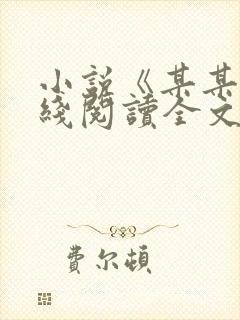 小說《某某
綫閱讀全文
費尔頓